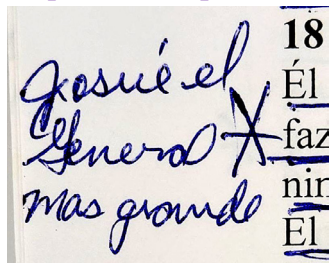 Josué el
General
mas grande
18
Él
faz
nin
El